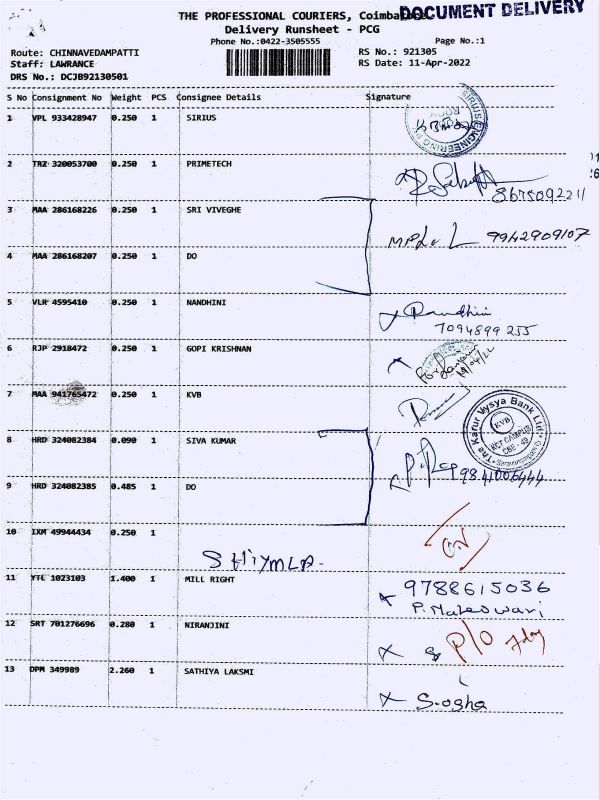 THE PROFESSIONAL COURIERS, Coimbatore
DOCUMENT DELIVERY
Delivery Runsheet - PCG
Phone No.:0422-3505555
Page No.:1
Route: CHINNAVEDAMPATTI
RS No.: 921305
Staff: LAWRANCE
RS Date: 11-Apr-2022
DRS No.: DCJB92130501
S No Consignment No Weight PCS Consignee Details Signature
1 VPL 933428947 0.250 1 SIRIUS
2 TRZ 320053700 0.250 1 PRIMETECH
8675092211
3 MAA 286168226 0.250 1 SRI VIVEGHE
9942909107
4 MAA 286168207 0.250 1 DO
5 VLR 4595410 0.250 1 NANDHINI
Nandhini
7094899255
6 RJP 2918472 0.250 1 GOPI KRISHNAN
7 MAA 941765472 0.250 1 KVB
The Karur Vysya Bank Ltd.
KVB
8 HRD 324082384 0.090 1 SIVA KUMAR
9841006444
9 HRD 324082385 0.485 1 DO
10 IXM 49944434 0.250 1
SHYMLA.
11 YTL 1023103 1.400 1 MILL RIGHT
9788615036
P. Maheswari
12 SRT 701276696 0.280 1 NIRANJINI
P/O 7day
13 DPM 349989 2.260 1 SATHIYA LAKSMI
S-osha